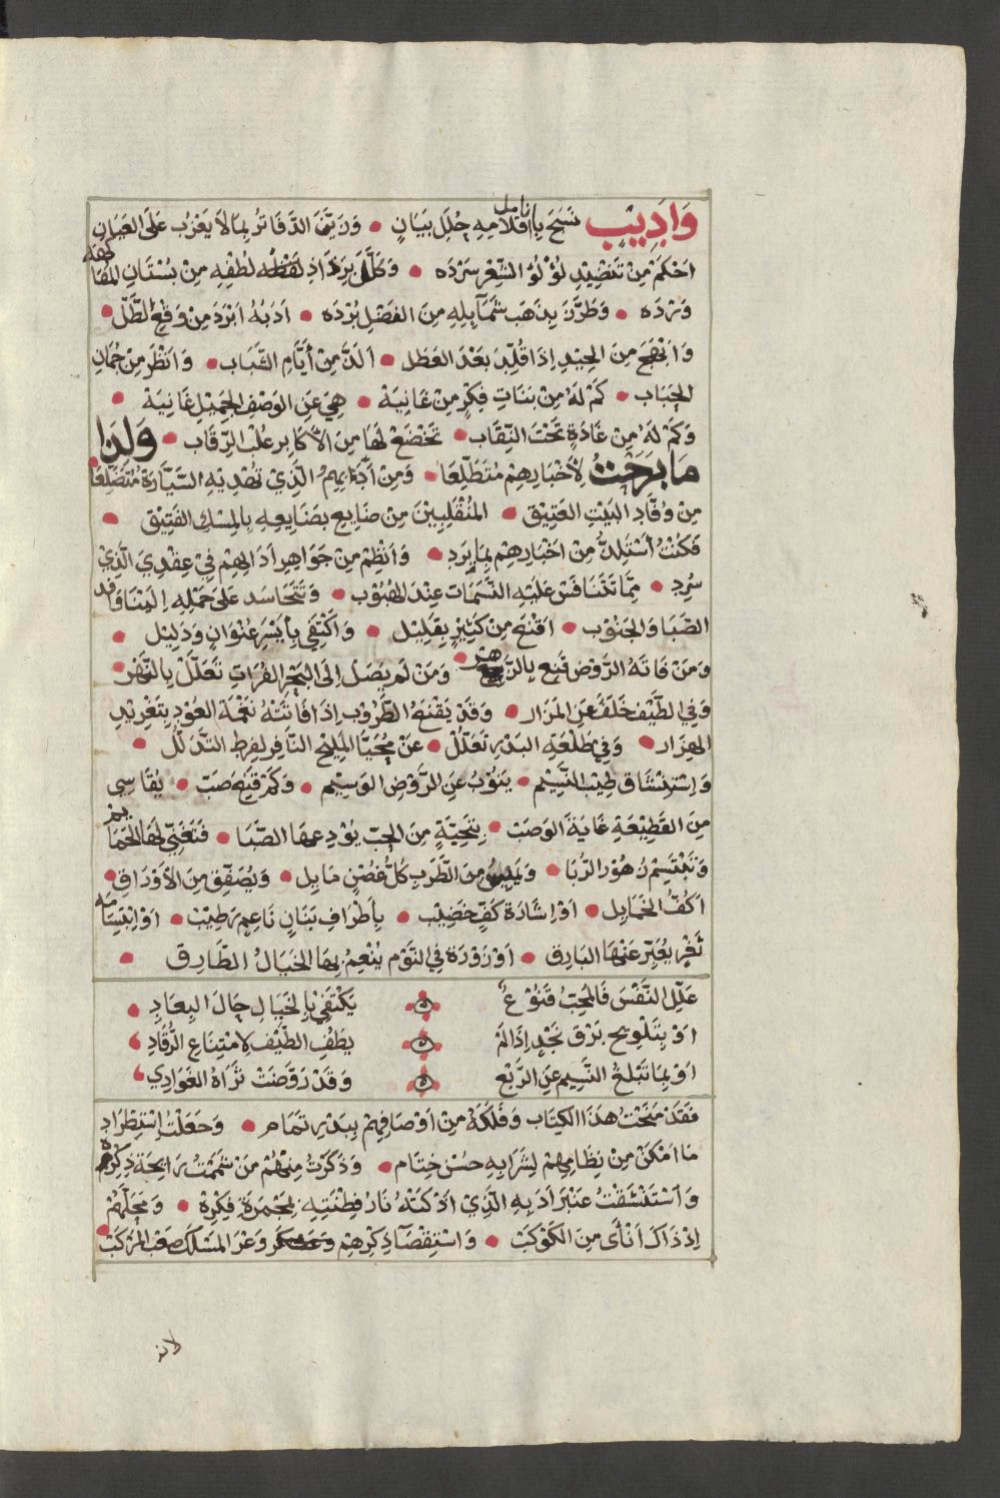 وَاَدِيبٍ نَسَجَ بِاَنامل اَقْلَامِهِ حُلَلَ بَيَانٍ • وَزَيَّنَ الدَّفَاتِرُ بِمَا لَا يَعْزُبُ عَلَى العَيَانِ
اَحْكَمَ مِنْ تَنْضِيْدِ لُؤْلُؤِ الشِّعْرِ سَرْدَه • وَكَلَّلَ بِرَذَاذِ لُطْفِهِ مِنْ بُسْتَانِ المُفَاكَهَه
وَرْدَه • وَطَرَّزَ بِذَهَبِ شَمَآيِلِهِ مِنَ الفَضْلِ بُرْدَه • اَدَبُهُ اَبْرَدُ مِنْ وَقْعِ الطَّلّ •
وَاَبْهَجُ مِنَ الجِيْدِ اِذَا قُلِّدَ بَعْدَ العَطَل • اَلَذُّ مِنْ أَيَّامِ الشَّبَاب • وَاَنْظَرُ مِنْ جُمَانِ
الحَبَاب • كَمْ لَهُ مِنْ بَنَاتِ فِكْرٍ مِنْ غَانِيَة • هِيَ عَنِ الوَصْفِ الجَمِيْلِ غَانِيَة •
وَكَمْ لَهُ مِنْ غَادَةٍ تَحْتَ النِّقَاب • تَخْضَعُ لَهَا مِنَ الأَكَابِرِ غُلْبُ الرِّقَاب • وَلَذَا
مَا بَرِحْتُ لِأَخْبَارِهِمْ مُتَطَلِّعًا • وَمِنْ الَّذِي تُهْدِيْهِ السَّيَّارَةُ مُتَضَلِّعًا •
مِنْ وُفَّادِ البَيْتِ العَتِيْق • المُنْقَلِبِيْنَ مِنْ صَنَايِعِ بَضَايِعِهِ بِالمِسْكِ الفَتِيْق •
فَكُنْتُ أَسْتَلِذُّ مِنْ اَخْبَارِهِمْ بِمَا يَرِد • وَاَنْظِمُ مِنْ جَوَاهِرِ اٰدَابِهِمْ فِيْ عِقْدِيَ الَّذِيْ
سُرِد • مِمَّا تَتَنَافَسُ عَلَيْهِ النَّسَمَات عِنْدَ الهُبُوْب • وَتَتَحَاسَد عَلَى حَمْلِهِ اِلَيْنَا وَفد
الصَّبَا وَالجَنُوْب • اَقْنَعُ مِنْ كَثِيْرٍ بِقَلِيْل • وَاَكْتَفِي بِأَيْسَرِ عُنْوَانٍ وَدَلِيْل •
وَمَنْ فَاتَهُ الرَّوْضُ قَنِعَ بِالزَّهْر • وَمَنْ لَمْ يَصِلْ اِلَى البَحْرِ الفُرَاتِ تَعَلَّلَ بِالنَّهْر •
وَفِي الطَّيْفِ خَلَفٌ عَنِ المَزَار • وَقَدْ يَقْنَعُ الطَّرُوْبُ اِذَا فَاتَتْهُ نَغْمَة العُوْدِ بِتَغْرِيْدِ
الهِزَار • وَفِي طَلْعَةِ البَدْرِ تَعَلُّلٌ • عَنْ مُحَيَّا المَلِيْحِ النَّافِرِ لِفَرطِ التَّدَلُّل •
وَاِسْتِنْشَاق طِيْبِ النَّسِيْم • يَنُوْبُ عَنِ الرَّوْضِ الوَسِيْم • وَكَمْ قَنِعَ صَبّ • يُقَاسِي
مِنَ القَطِيْعَةِ غَايَةَ الوَصَب • بِتَحِيَّةٍ مِنَ الحِبّ يُوْدِعهَا الصَّبَا • فَتَغَنّي لَهَا الحَمَايِمُ
وَتَبْتَسِمُ زُهُوْرُ الرُّبَا • وَيَمِيْسُ مِنَ الطَّرَبِ كُلُّ غُصْنٍ مَايِل • وَيُصَفِّق مِنَ الأَوْرَاقِ •
اَكُفُّ الخَمَايِل • اَوْ اِشَادَة كَفٍّ خَضِيْب • بِأَطْرَافِ بَنَانٍ نَاعِمٍ رَطِيْب • اَوْ اِبْتِسَامَه
ثَغْرٍ يُعَبِّر عَنْهَا البَارِق • اَوْ زَوْرَة فِي النَّوْم يُنْعِمُ بِهَا الخَيَالُ الطَّارِق •
عَلِّلِ النَّفْسَ فَالمُحِبّ قَنُوْعٌ يَكْتَفِيْ بِالخَيَالِ حَالَ البِعَادِ
اَوْ بِتَلْوِيْحِ بَرْقِ نَجْدٍ اِذَا لَمْ يَطُفِ الطَّيْف لِامْتِنَاعِ الرُّقَادِ
اَوْ بِمَا تَبْلُغُ النَّسِيم عَنِ الرَّبْع وَقَدْ رَوَّضَتْ ثَرَاهُ الغَوَادِي
فَقَدْ مَنَحْتُ هٰذَا الكِتَاب وَفُلْكَهُ مِنْ اَوْصَافِهِمْ بِبَدْرِ تَمَام • وَجَعَلْتُ اسْتِطْرَادِ
مَا اَمْكَنَ مِنْ نِظَامِهِمْ لِشَرَابِهِ حُسْنَ خِتَام • وَذَكَرْتُ مِنْهُمْ مَنْ شَمَمْتُ رَايِحَةَ ذِكْرِهِ
وَاَسْتَنْشَقْتُ عَنْبَرَ اٰدَبِهِ الَّذِيْ اَذْكَتْهُ نَارُ فِطْنَتِهِ بِمَجْمَرَةِ فِكْرِهْ • وَمَحَلُّهُمْ
اِذْ ذَاكَ اَنْأَى مِنَ الكَوْكَبْ • وَاسْتِقْصَآ ذِكْرِهِمْ وَعْرَ المَسْلَك صَعْبَ المَرْكَبْ •
لانه